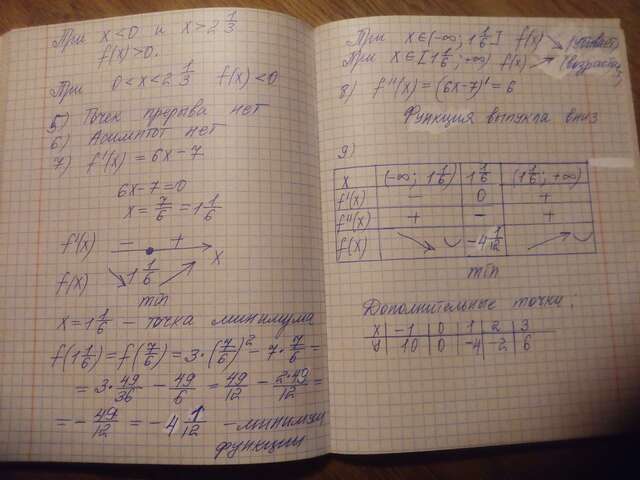 При x < 0 и x > 2 1/3
f(x) > 0.
При 0 < x < 2 1/3 f(x) < 0
5) Точек прерыва нет
6) Асимптот нет
7) f'(x) = 6x - 7
6x - 7 = 0
x = 7/6 = 1 1/6
f'(x) - + x
f(x) ↘ 1 1/6 ↗
min
x = 1 1/6 – точка минимума
f(1 1/6) = f(7/6) = 3·(7/6)² - 7·7/6 =
= 3·49/36 - 49/6 = 49/12 - 2·49/12 =
= - 49/12 = -4 1/12 - минимум
функции
При x∈(-∞; 1 1/6] f(x) ↘ (убывает)
При x∈[1 1/6; +∞) f(x) ↗ (возрастает)
8) f''(x) = (6x-7)' = 6
Функция выпукла вниз
9)
x (-∞; 1 1/6) 1 1/6 (1 1/6; +∞)
f'(x) - 0 +
f''(x) + - +
f(x) ↘ ◡ -4 1/12 ↗ ◡
min
Дополнительные точки.
x -1 0 1 2 3
y 10 0 -4 -2 6